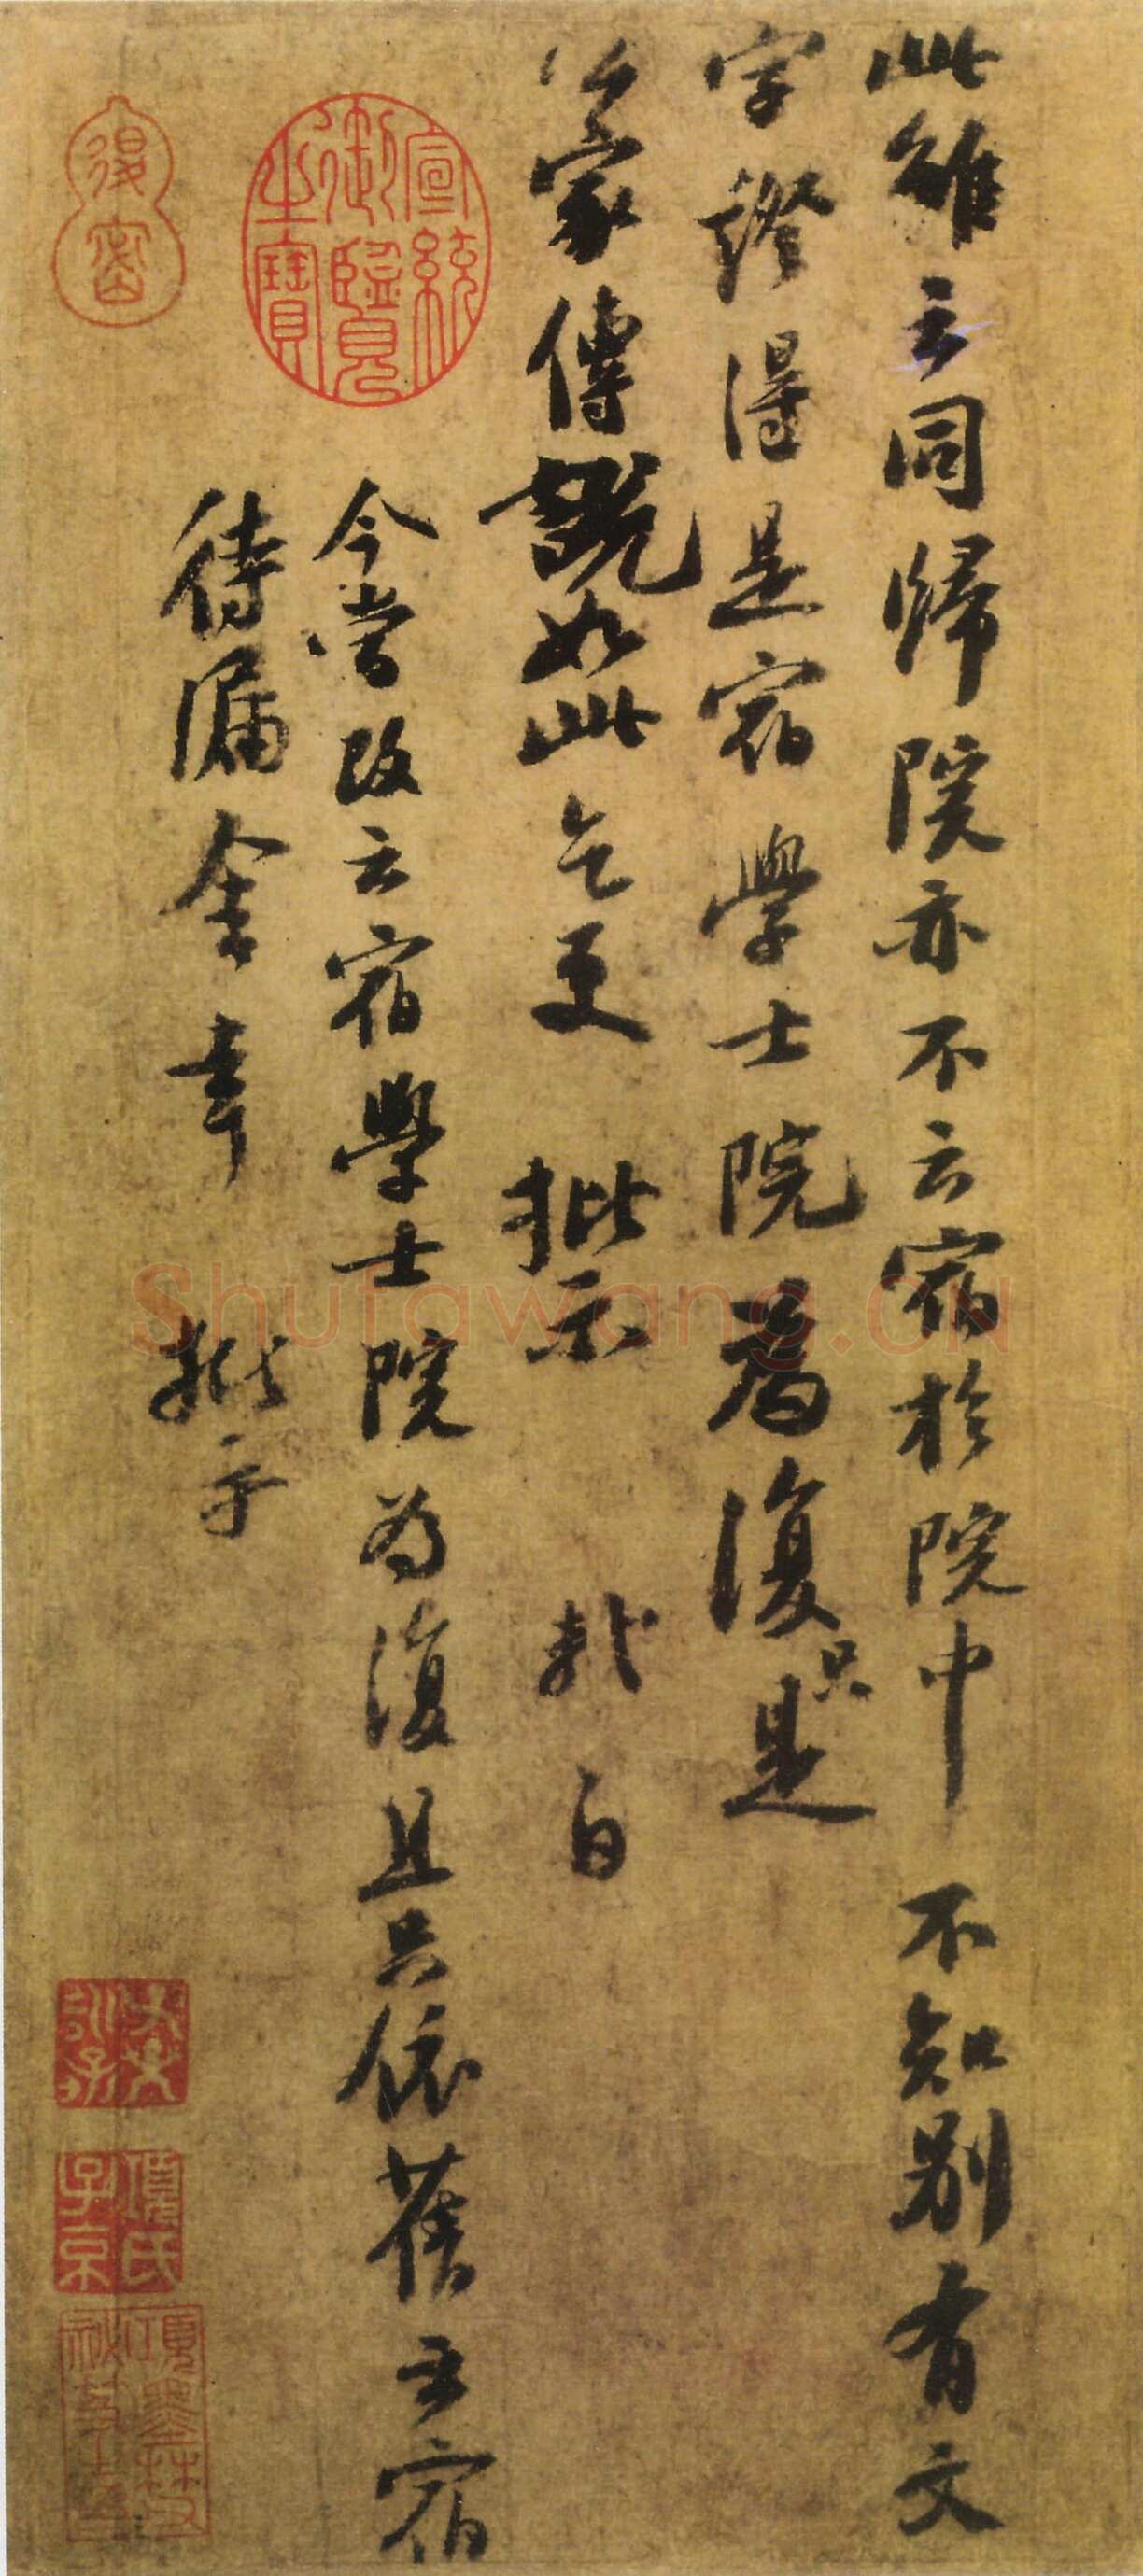 此雖云同歸院亦不云宿於院中 不知別有文
字證得是宿學士院為復只是
公家傳說如此乞更 批示 軾 白
今嘗改云宿學士院為復且只依舊云宿
待漏舍幸 批示
宣統
御覽
之寶
項氏
子京
項墨林父
祕笈之印
Shufawang.CN